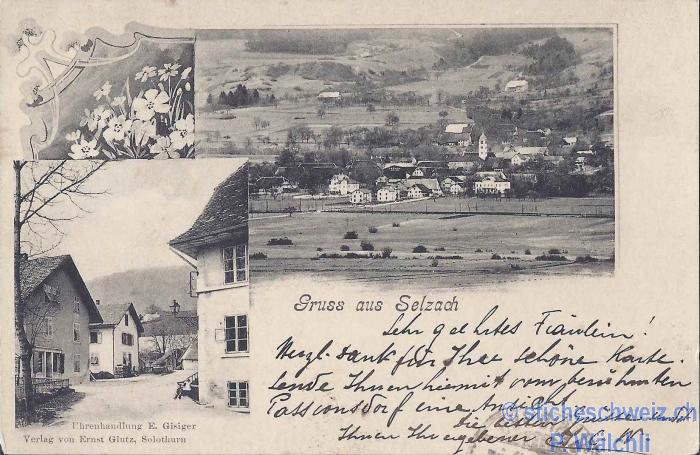 Gruss aus Selzach
Sehr geehrtes Fräulein!
Herzl. Dank für Ihre schöne Karte.
sende Ihnen hiermit vom berühmten
Passionsdorf eine Ansicht
die besten
Ihnen Ihr ergebener
Uhrenhandlung E. Gisiger
Verlag von Ernst Glutz, Solothurn
© sticheschweiz.ch
P. Wälchli